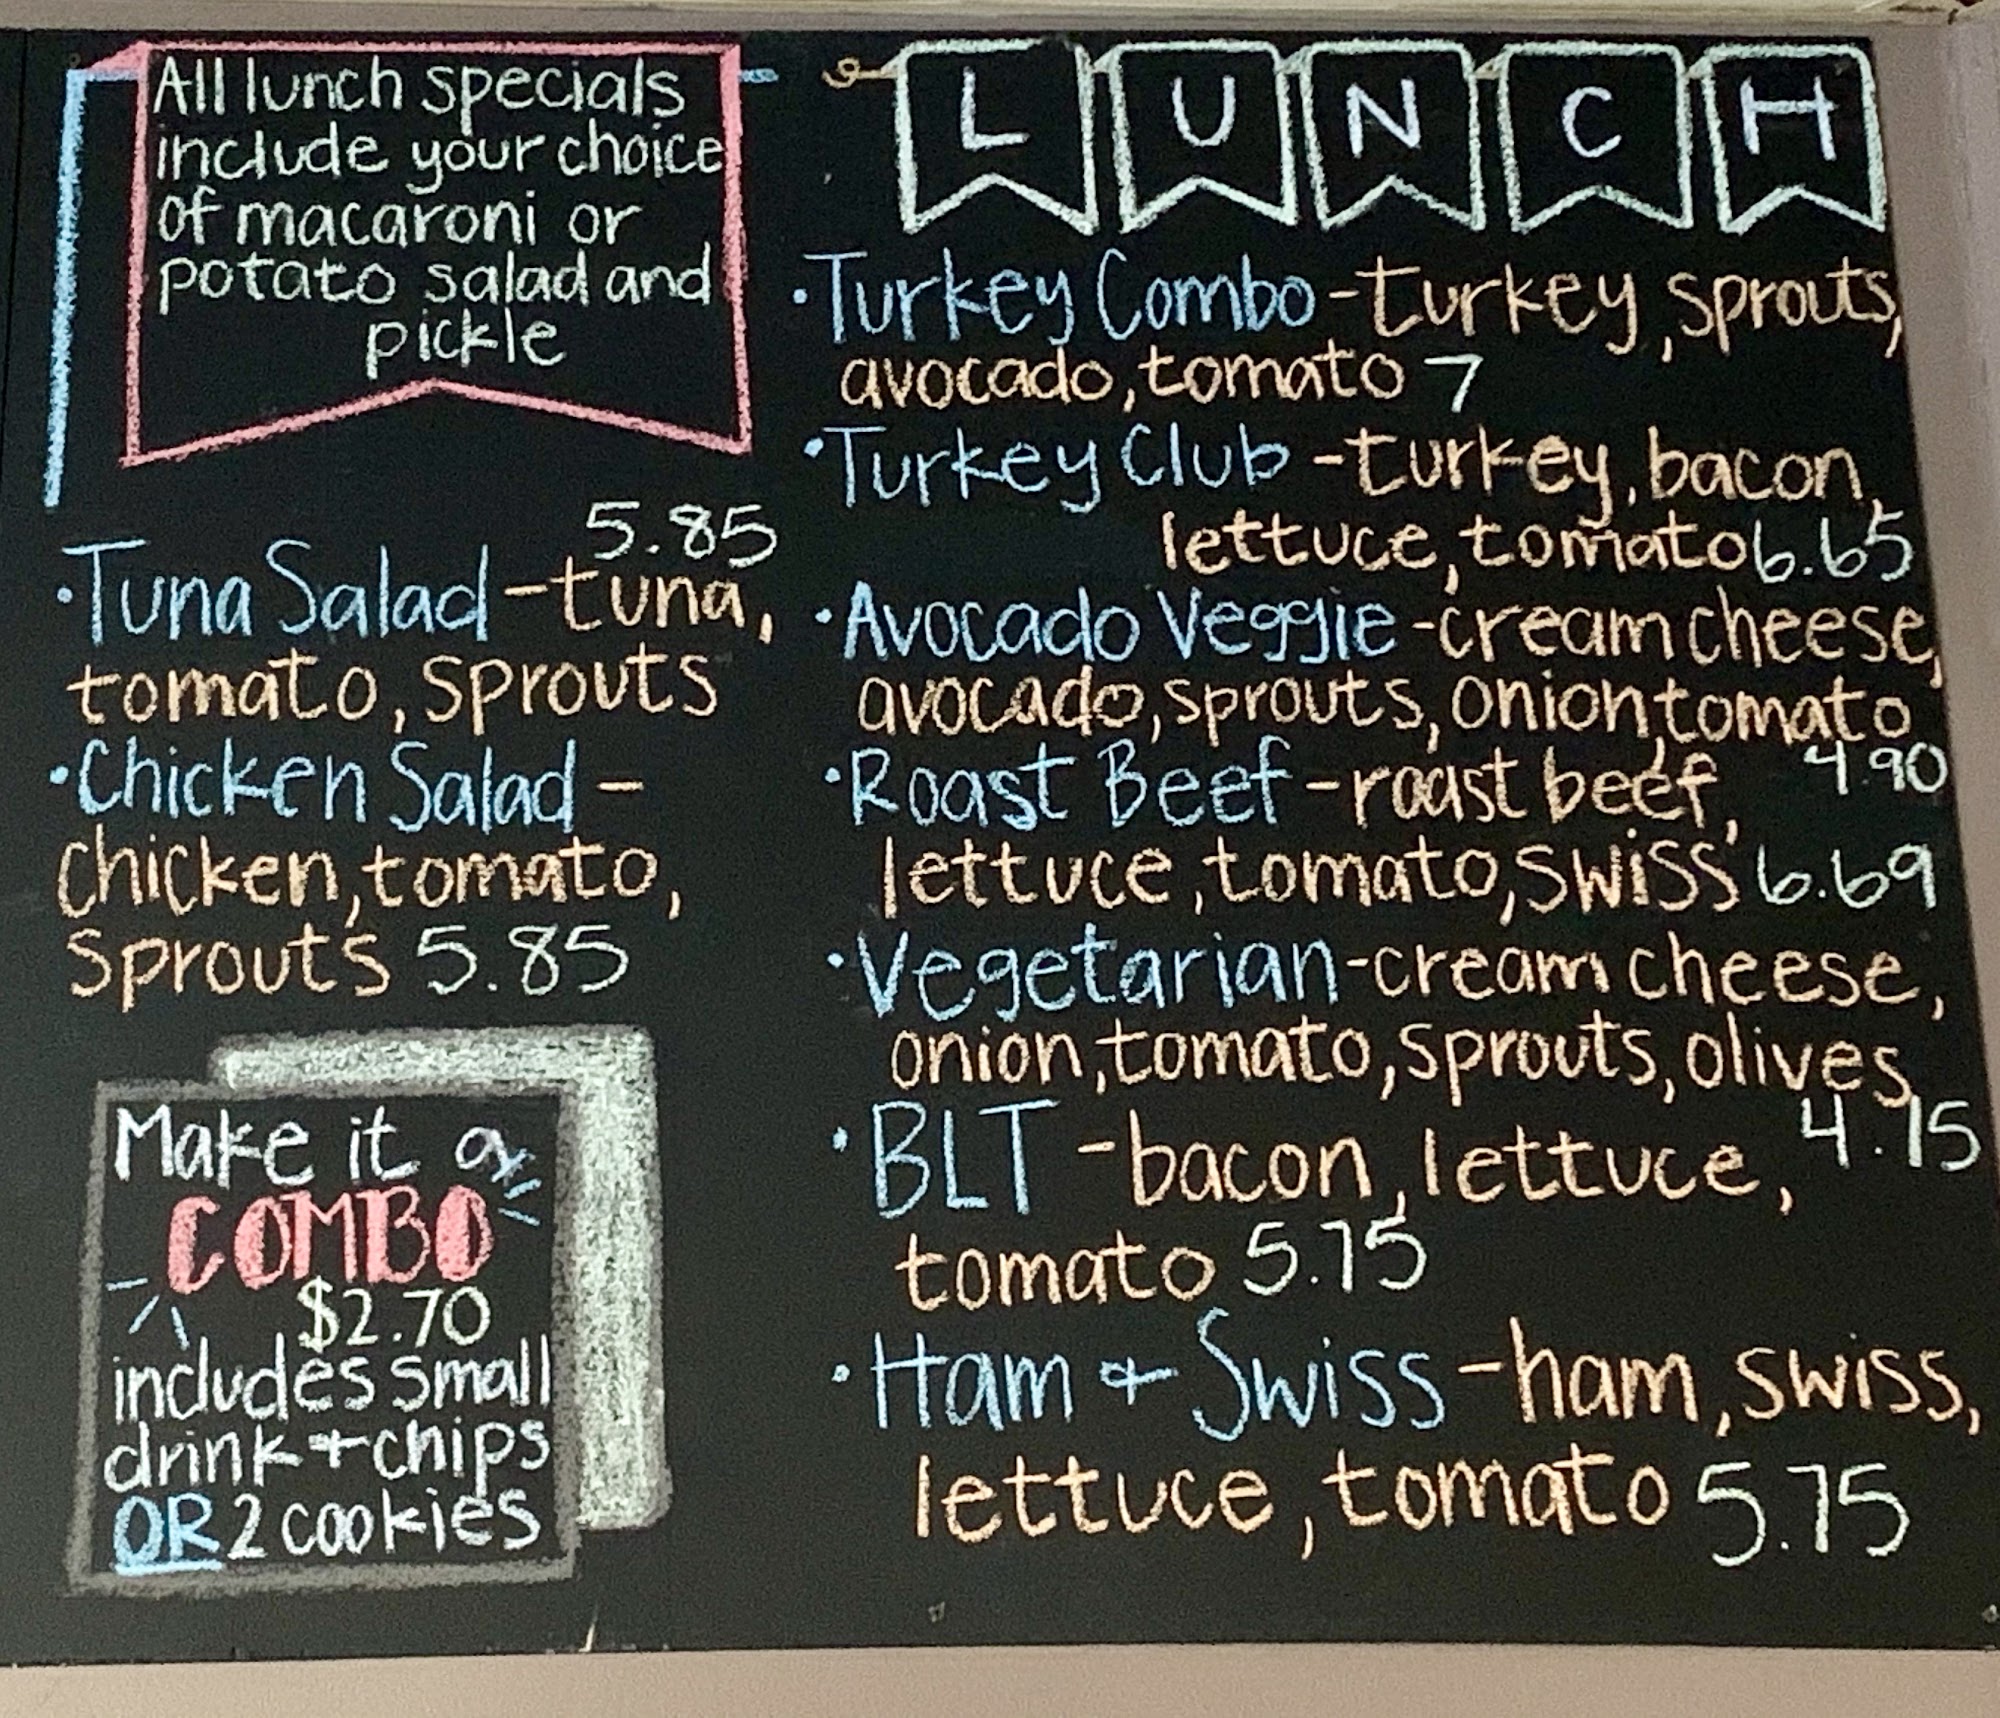 All lunch specials
include your choice
of macaroni or
potato salad and
pickle
5.85
•Tuna Salad -tuna,
tomato, sprouts
•Chicken Salad -
chicken, tomato,
sprouts 5.85
Make it a
COMBO
$2.70
includes small
drink + chips
OR 2 cookies
LUNCH
•Turkey Combo -turkey, sprouts,
avocado, tomato 7
•Turkey Club -turkey, bacon,
lettuce, tomato 6.65
•Avocado Veggie -cream cheese,
avocado, sprouts, onion, tomato
4.90
•Roast Beef -roast beef,
lettuce, tomato, swiss 6.69
•Vegetarian -cream cheese,
onion, tomato, sprouts, olives
4.15
•BLT -bacon, lettuce,
tomato 5.75
•Ham + Swiss -ham, swiss,
lettuce, tomato 5.75